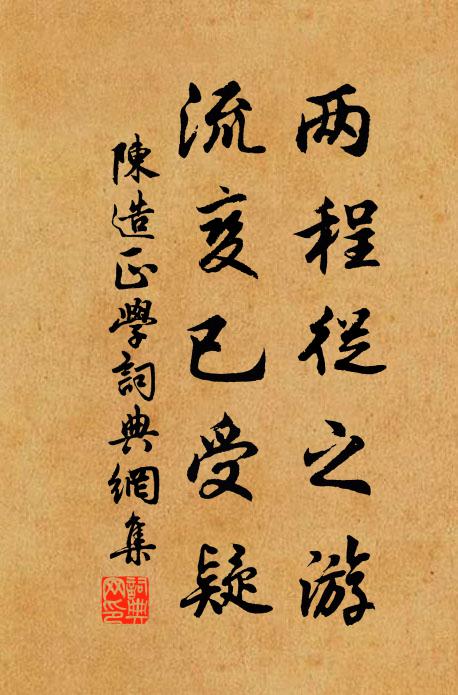 两程從之游
流变已受疑
陳造正學詞典網集
詞典网印